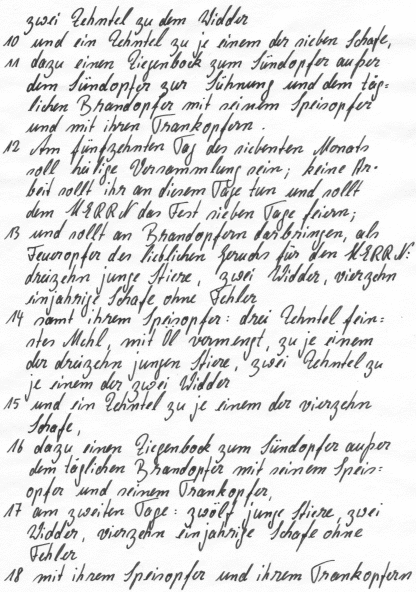 zwei Zehntel zu dem Widder
10 und ein Zehntel zu je einem der sieben Schafe,
11 dazu einen Ziegenbock zum Sündopfer außer
dem Sündopfer zur Sühnung und dem täg=
lichen Brandopfer mit seinem Speisopfer
und mit ihren Trankopfern.
12 Am fünfzehnten Tag des siebenten Monats
soll heilige Versammlung sein; keine Ar-
beit sollt ihr an diesem Tage tun und sollt
dem HERRN das Fest sieben Tage feiern;
13 und sollt an Brandopfern darbringen, als
Feueropfer des lieblichen Geruchs für den HERRN:
dreizehn junge Stiere, zwei Widder, vierzehn
einjährige Schafe ohne Fehler
14 samt ihrem Speisopfer: drei Zehntel fein=
stes Mehl, mit Öl vermengt, zu je einem
der dreizehn jungen Stiere, zwei Zehntel zu
je einem der zwei Widder
15 und ein Zehntel zu je einem der vierzehn
Schafe,
16 dazu einen Ziegenbock zum Sündopfer außer
dem täglichen Brandopfer mit seinem Speis=
opfer und seinem Trankopfer,
17 am zweiten Tage: zwölf junge Stiere, zwei
Widder, vierzehn einjährige Schafe ohne
Fehler
18 mit ihrem Speisopfer und ihrem Trankopfern